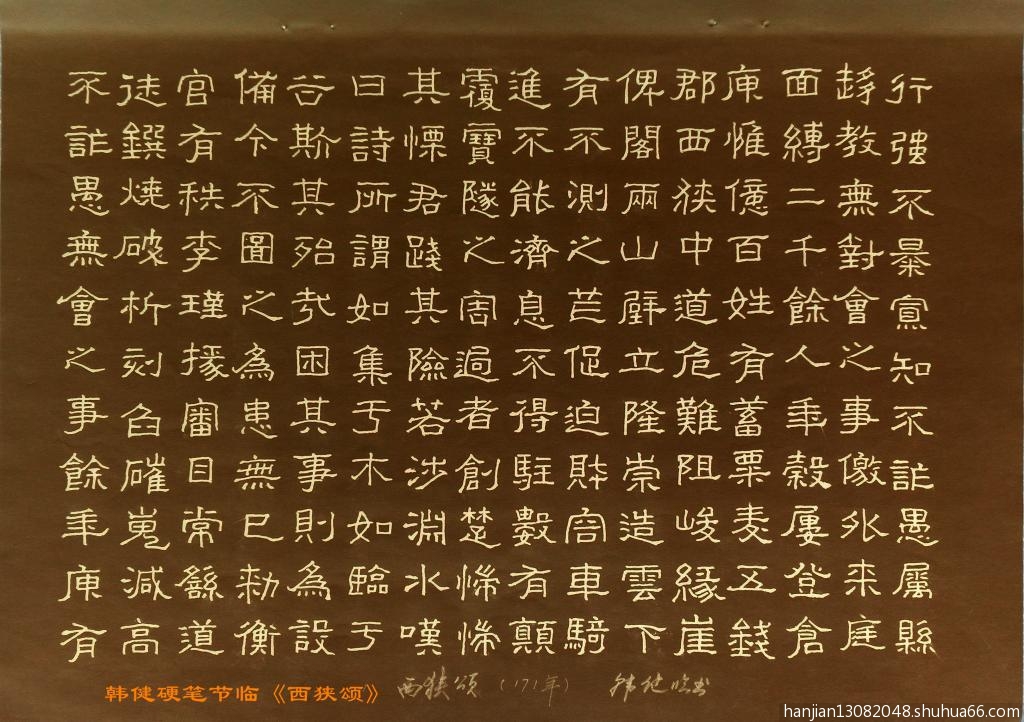 行強不暴寡知不詐愚屬縣
趍教無對會之事儌外来庭
面縛二千餘人年穀屢登倉
庾惟億百姓有蓄粟麦五錢
郡西狹中道危難阻峻緣崖
俾閣兩山壁立隆崇造雲下
有不測之芒促迫財容車騎
進不能濟息不得駐數有顛
覆寶隧之害過者創楚惴惴
其慄君踐其險若涉淵水嘆
曰詩所謂如集于木如臨于
谷斯其殆哉困其事則為設
備今不圖之為患無已勑衡
官有秩李瑾掾審曰常繇道
徒鐉燒破析刻臽磪嵬減高
不詐愚無會之事餘年庾有
西狭颂（171年） 韩健临书
韩健硬笔节临《西狭颂》
hanjian13082048.shuhua66.com